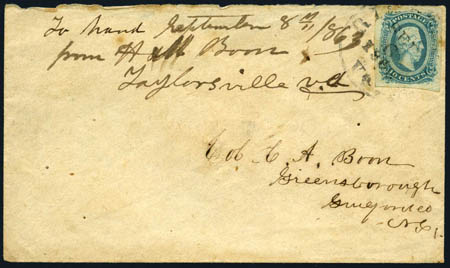 To hand September 8th/1863
from H M Boon
Taylorsville va
POSTAGE
TEN CENTS
Col C A Boon
Greensborough
Guilford Co
N.C.